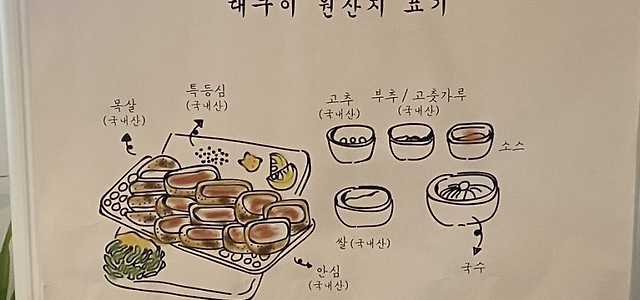 원산지 표기
특등심
(국내산)
목살
(국내산)
고추
(국내산)
부추/고춧가루
(국내산)
소스
쌀(국내산)
안심
(국내산)
국수